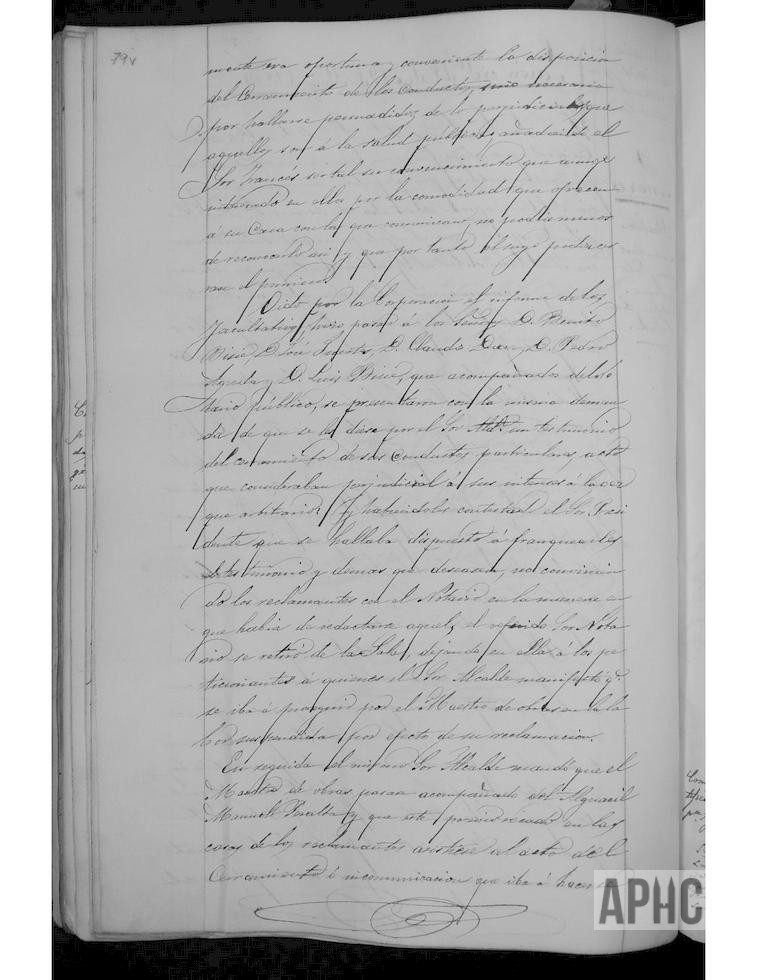 79v
mente era oportuna y conveniente la disposicion
del Cerramiento de los Conductos, sino necesaria
por hallarse persuadidos de lo perjudiciales que
aquellos son á la salud pública, añadiendo el
Sor Frances ser tal su convencimiento que aunque
interesado en ellos por la comodidad que ofrecen
á su Casa con la que comunican, no podia menos
de reconocerlo asi y que por tanto el suyo podia cer
rarse el primero.
Oido por la Corporacion el informe de los
Facultativos, hizo pasar á los Señores D. Benito
D. José D. Claudio D. Pedro
y D. Luis que acompañados del No
tario público, se presentaron con la misma deman
da de que se les diese por el Sor Alde. un testimonio
del cerramiento de sus conductos particulares, acto
que consideraban perjudicial á sus intereses á la vez
que arbitrario. Y habiendoles contestado el Sor Presi
dente que se hallaba dispuesto á franquearles
el testimonio y demas que deseasen, no convinien
do los reclamantes con el Notario en la manera en
que habia de redactarse aquel, el referido Sor Nota
rio se retiró de la Sala, dejando en ella á los pe
ticionarios á quienes el Sor Alcalde manifestó q.e
se iba á proseguir por el Maestro de obras en la la
bor suspendida por efecto de su reclamacion.
En seguida el mismo Sor Alcalde mandó que el
Maestro de obras pasara acompañado del Alguacil
Manuel Peralta y que este previo recado en las
casas de los reclamantes asistiese al acto del
Cerramiento ó incomunicacion que iba á hacerse
APHC